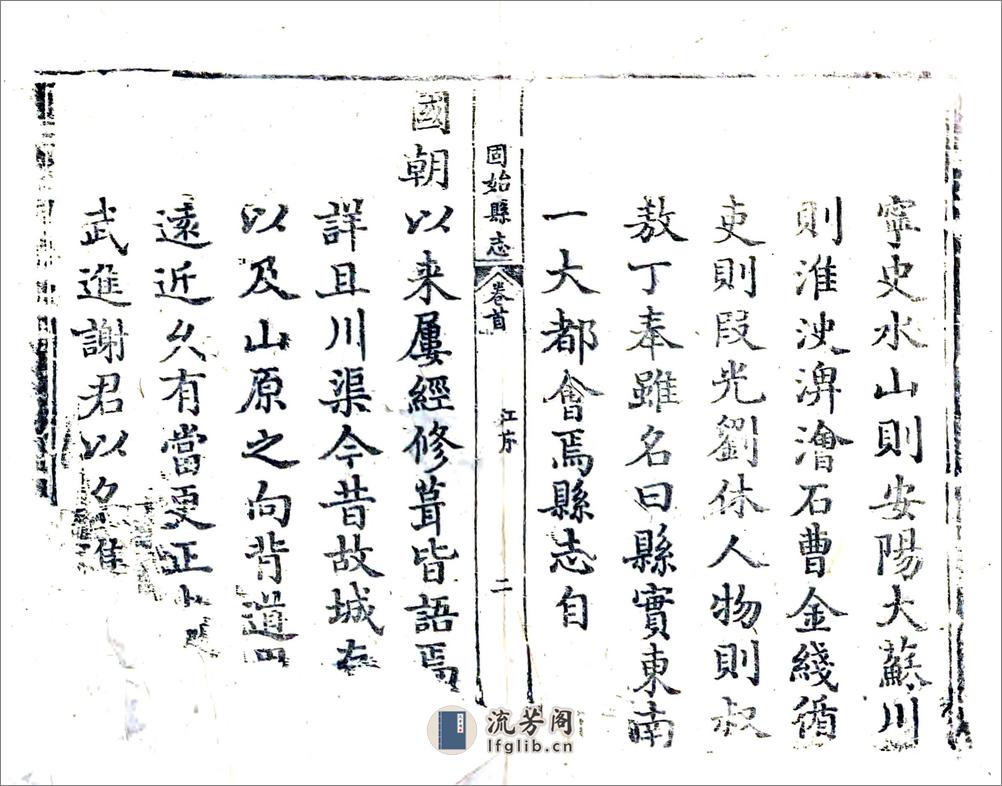 寧史水山則安陽大蘇川
則淮決淠澮石曹金綫循
吏則叚光劉休人物則叔
敖丁奉雖名曰縣實東南
一大都會焉縣志自
固始縣志 卷首 江序 二
國朝以来屢經修葺皆語焉
詳且川渠今昔故城
以及山原之向背道
遠近久有當更正
武進謝君以名
流芳阁
lfglib.cn